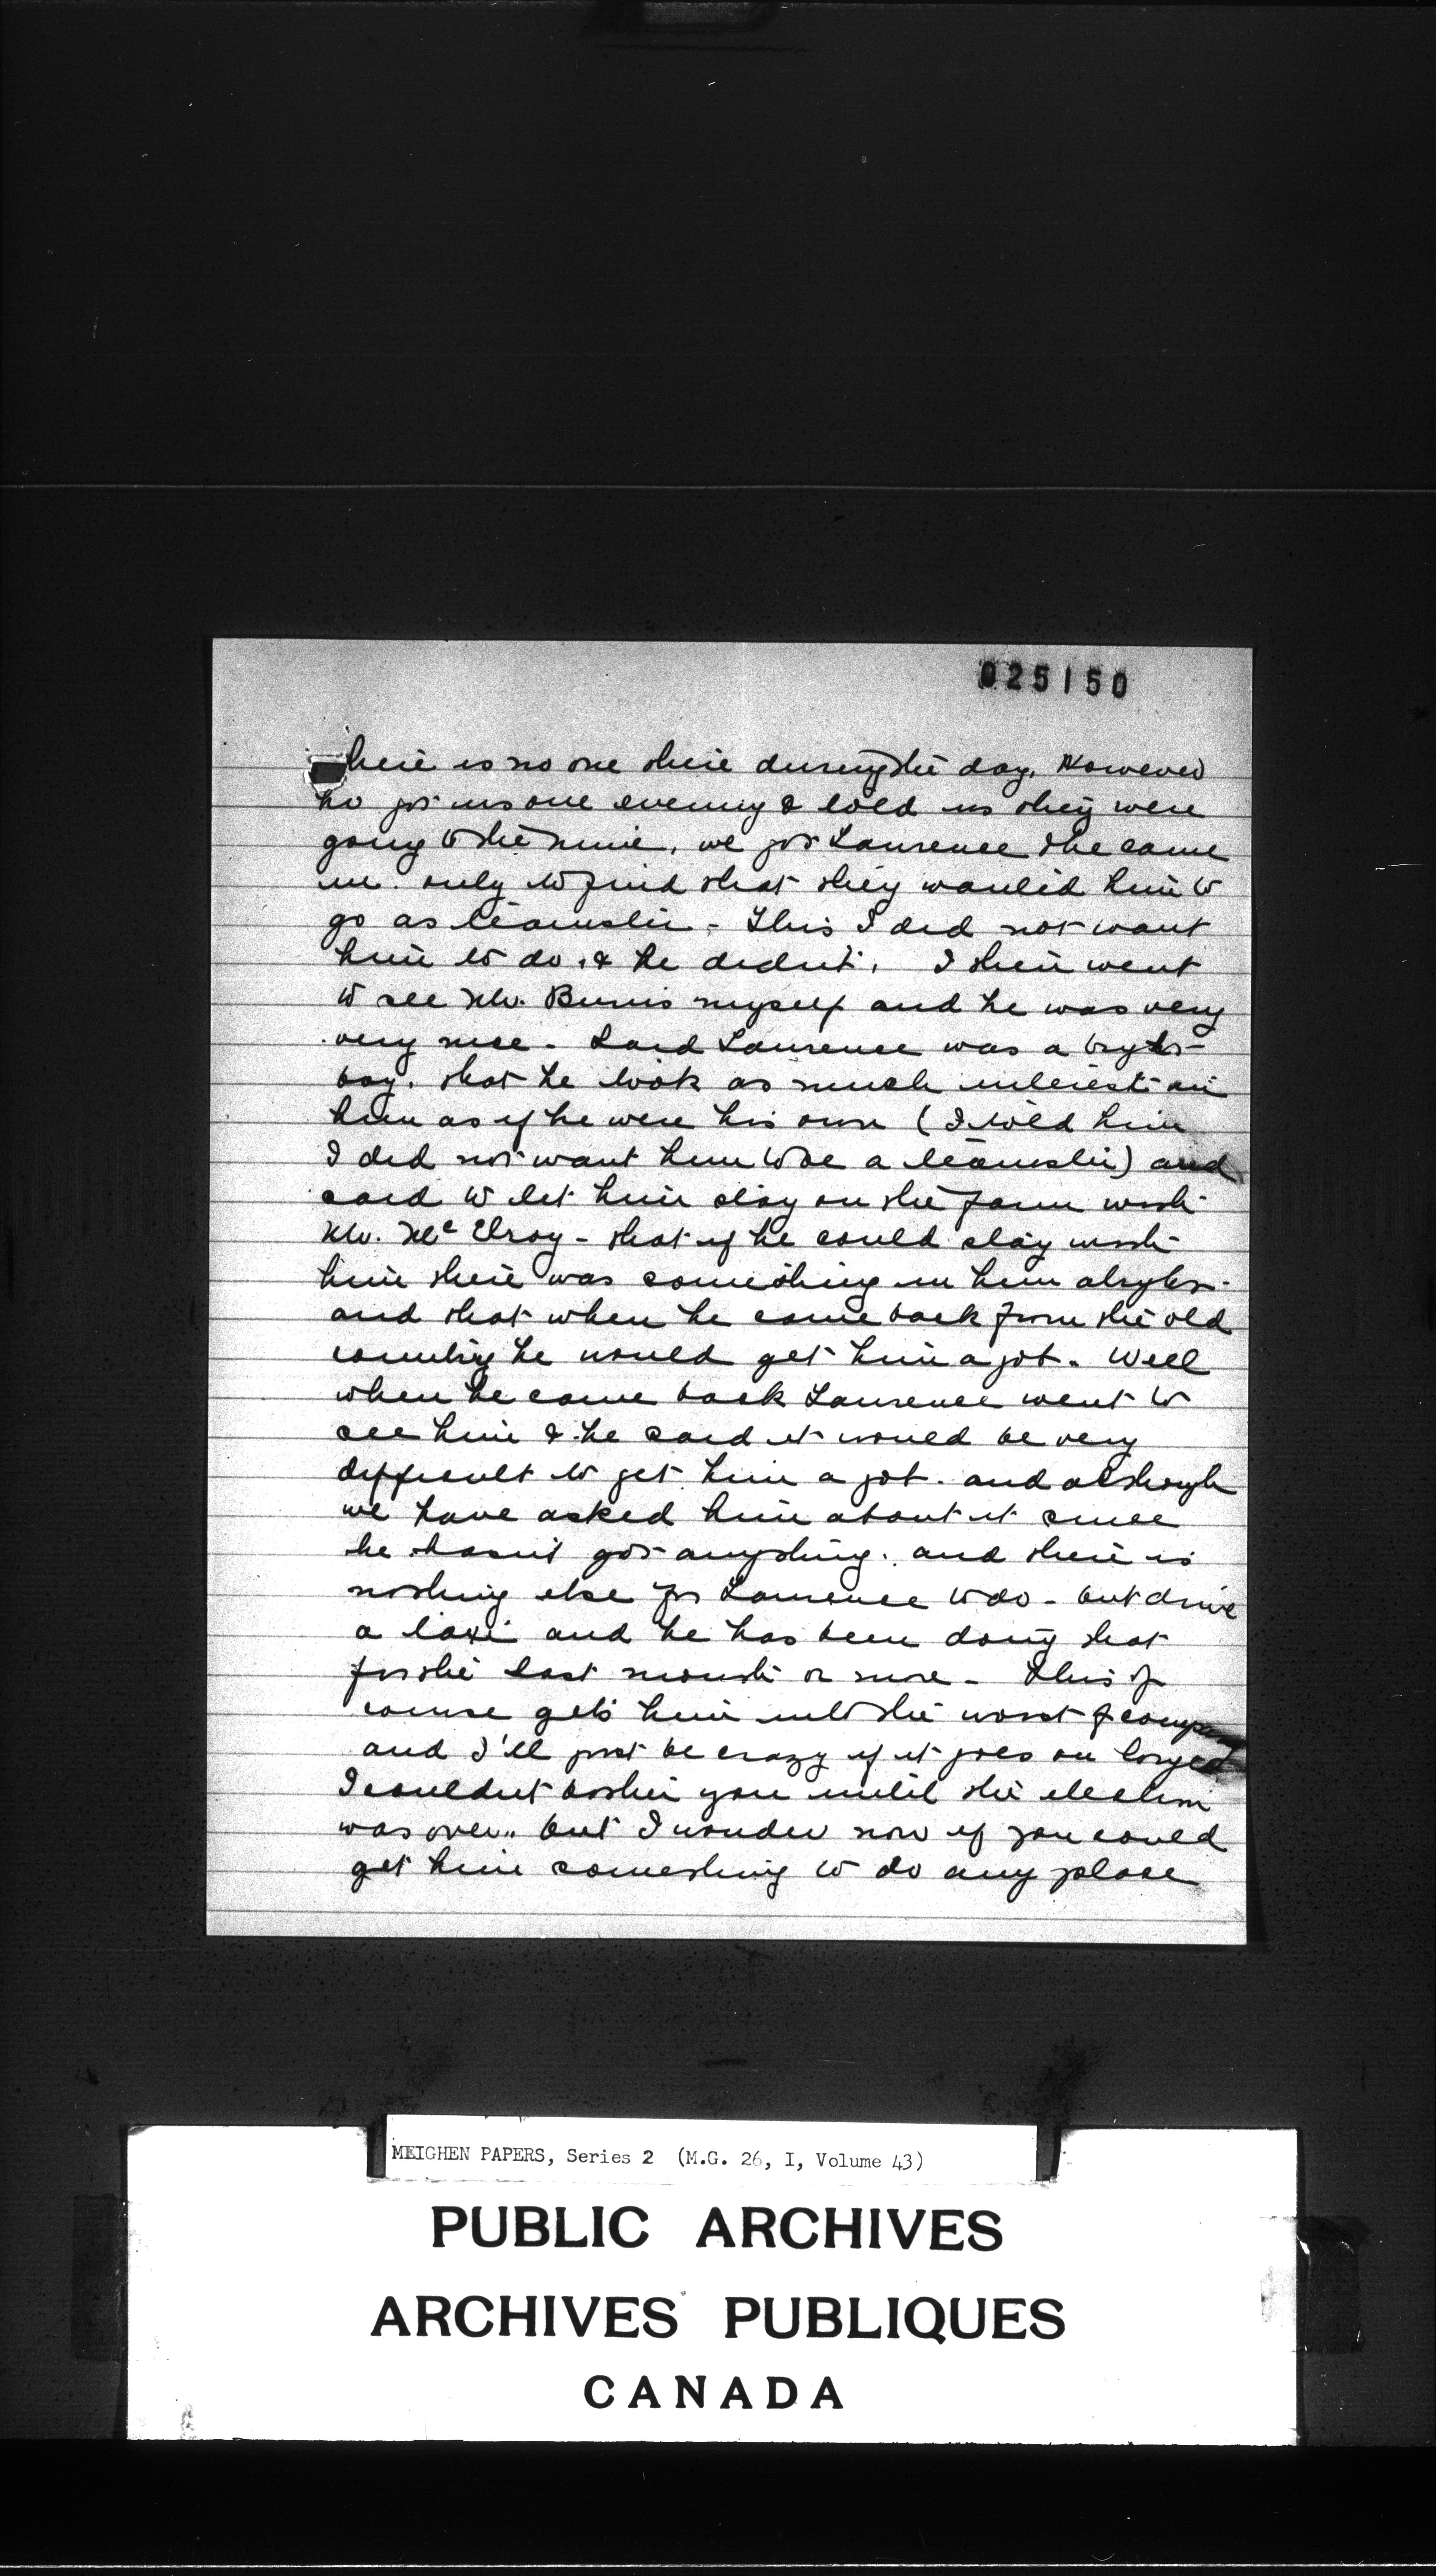 025150
there is no one there during the day. However
he got us one evening & told us they were
going to the mine, we got Laurence & he came
in. only to find that they wanted him to
go as teamster - This I did not want
him to do, & he didn't. I then went
to see Mr. Burns myself and he was very
very nice - Said Laurence was a bright
boy. that he took as much interest in
him as if he were his own (I told him
I did not want him to be a teamster) and
said to let him stay on the farm with
Mr. McElroy - that if he could stay with
him there was something in him alright.
and that when he came back from the old
country he would get him a job. Well
when he came back Laurence went to
see him & he said it would be very
difficult to get him a job. and although
we have asked him about it since
he hasn't got anything. and there is
nothing else for Laurence to do - but drive
a taxi and he has been doing that
for the last month or more - This of
course gets him into the worst of
and I'll just be crazy if it goes on longer
I couldnt bother you until the election
was over.. but I wonder now if you could
get him something to do any place
MEIGHEN PAPERS, Series 2 (M.G. 26, I, Volume 43)
PUBLIC ARCHIVES
ARCHIVES PUBLIQUES
CANADA